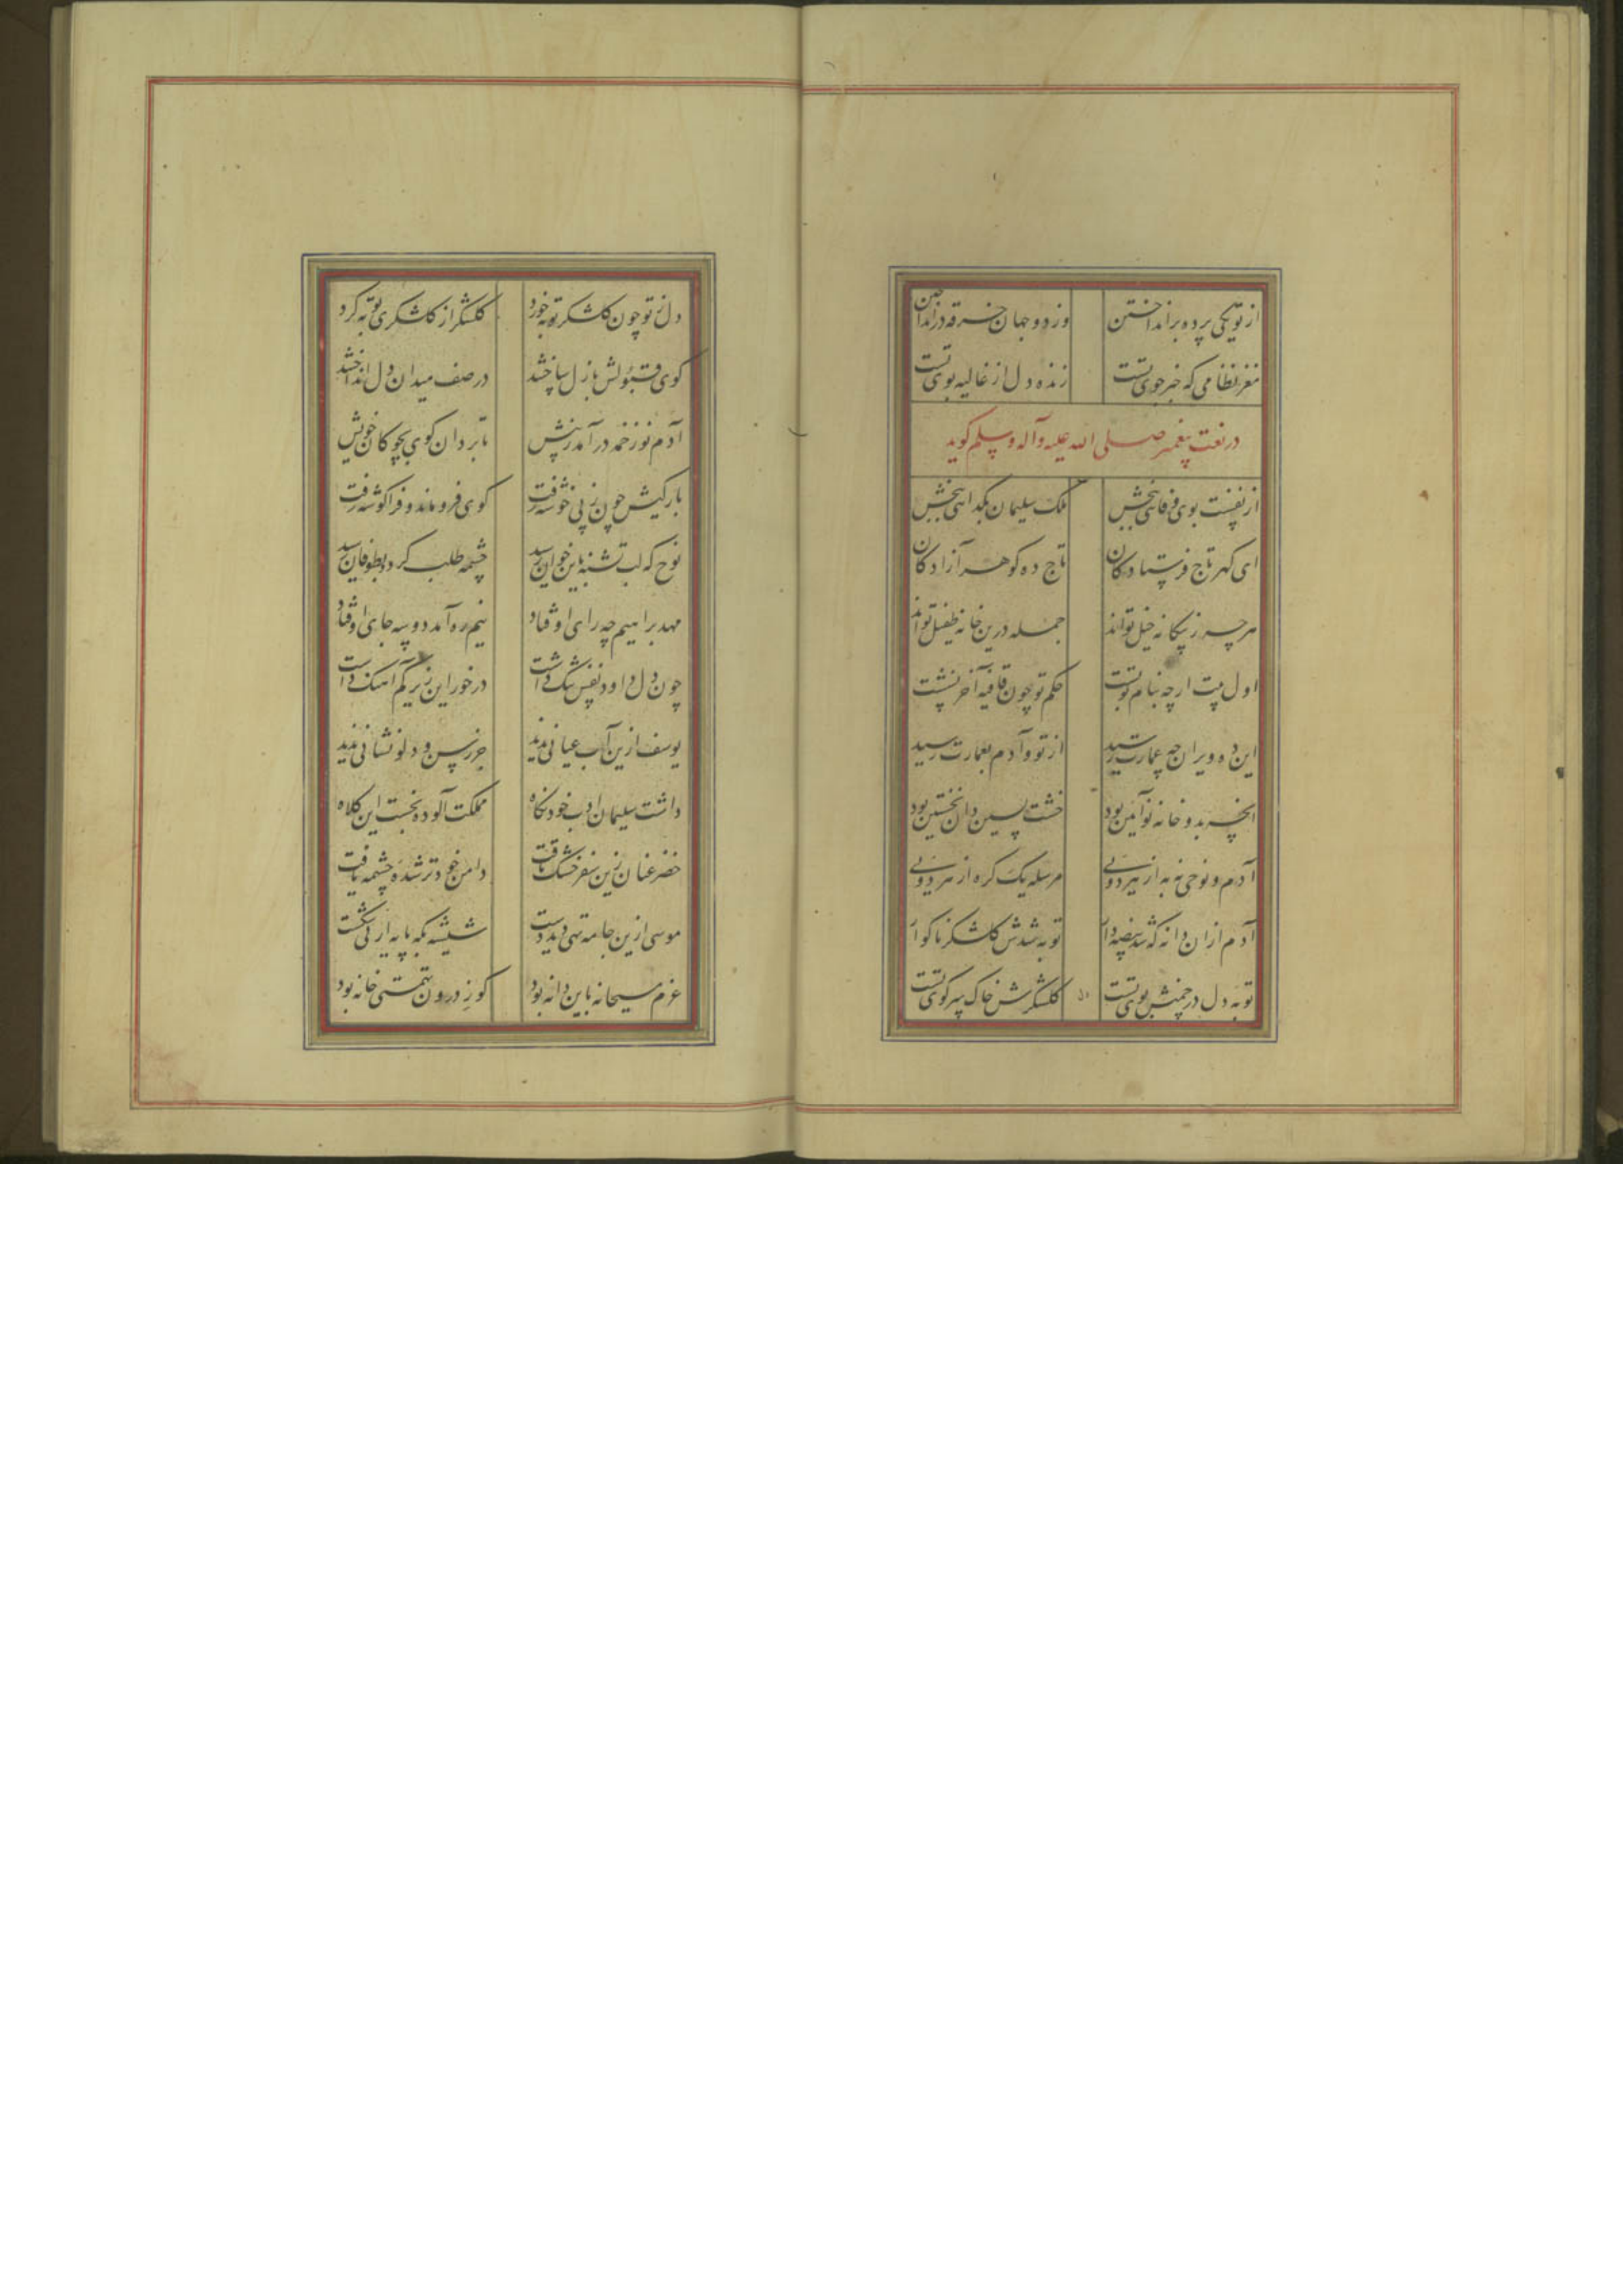 از تو یکی پرده برانداختن وز دو جهان خرقه درانداختن
مغز نظامی که خبر جوی تست زنده دل از غالیه بوی تست
در نعت پیغمبر صلی الله علیه وآله وسلم گوید
از نفست بوی وفائی ببخش ملک سلیمان بگدائی ببخش
ای گهر تاج فرستادگان تاج ده گوهر آزادگان
هرچه ز بیگانه خیل تواند جمله درین خانه طفیل تواند
اول بیت ارچه بنام تو بست حکم تو چون قافیه آخر نشست
این ده ویران چه عمارت رسید از تو و آدم بعمارت رسید
آنچه بدو خانه نوآئین بود خشت پسین دان نخستین بود
آدم و نوحی نه به از هر دوئی مرسله یک گره از هر دوئی
آدم ازان دانه که شد هیضه دار توبه شدش گلشکر ناگوار
توبه دل در چمنش بوی تست گلشکرش خاک سر کوی تست
دل
دل ز تو چون گلشکر توبه خورد گلشکر از گلشکری توبه کرد
گوی قبولش بازل ساختند در صف میدان دل انداختند
آدم نو زخمه درآمد به پیش تا برد آن گوی بچوگان خویش
بارگیش چون ز پی خوشه رفت گوی فرو ماند و فرا گوشه رفت
نوح که لب تشنه باین خوان رسید چشمه طلب کرد بطوفان رسید
مهد براهیم چه رای اوفتاد نیم ره آمد دو سه جای اوفتاد
چون دل داود نفس تنگ داشت در خور این زیر کم آهنگ داشت
یوسف ازین آب عیانی ندید جز رسن و دلو نشانی ندید
داشت سلیمان ادب خود نگاه مملکت آلوده نجست این کلاه
خضر عنان زین سفر خشک تافت دامن خود تر شده چشمه یافت
موسی ازین جامه تهی دید دست شیشه بکه پایه ارنی شکست
عزم مسیحا نه باین دانه بود کو ز درون تهمتی خانه بود